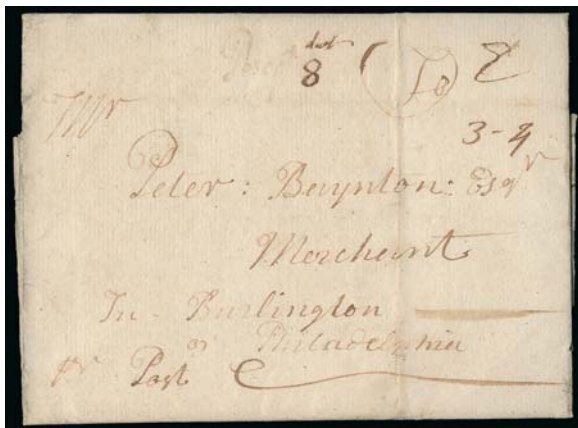 dwt
8
To
3-4
Mr
Peter: Baynton: Esqr
Merchant
In Burlington
or Philadelphia
pr Post